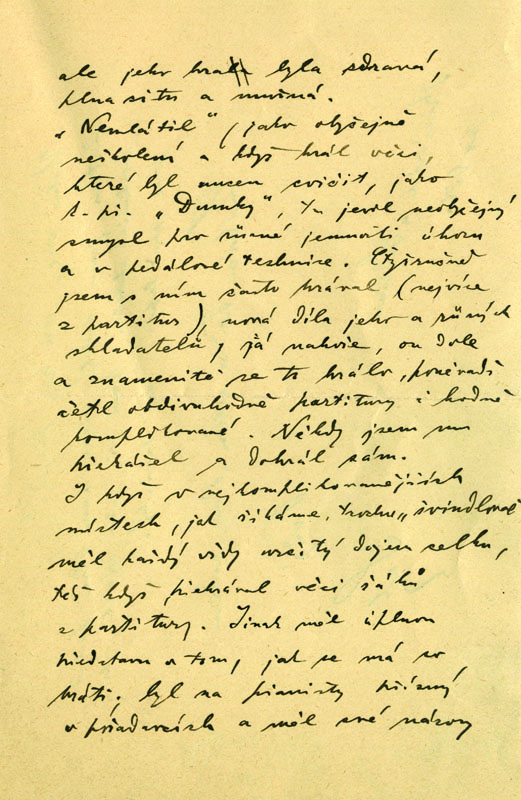 ale jeho hra byla zdravá,
plna citu a mužná.
„Nemlátil“, jako obyčejně
neškolení a když hrál věci,
které byl nucen cvičit, jako
t. př. „Dumky“, tu jevil neobyčejný
smysl pro různé jemnosti úhozu
a v pedálové technice. Čtyřručně
jsem s ním často hrával (nejvíce
z partitur), nová díla jeho a různých
skladatelů, já nahoře, on dole
a znamenitě se to hrálo, poněvadž
četl obdivuhodně partitury i hodně
komplikované. Někdy jsem mu
přestal a dohrál sám.
I když v nejkomplikovanějších
místech, jak říkáme, trochu „švindloval“
měl každý vždy určitý dojem celku,
též když přehrával věci žáků
z partitury. Jinak měl úplnou
představu o tom, jak se má co
hráti; byl na pianisty přísný
v požadavcích a měl své názory